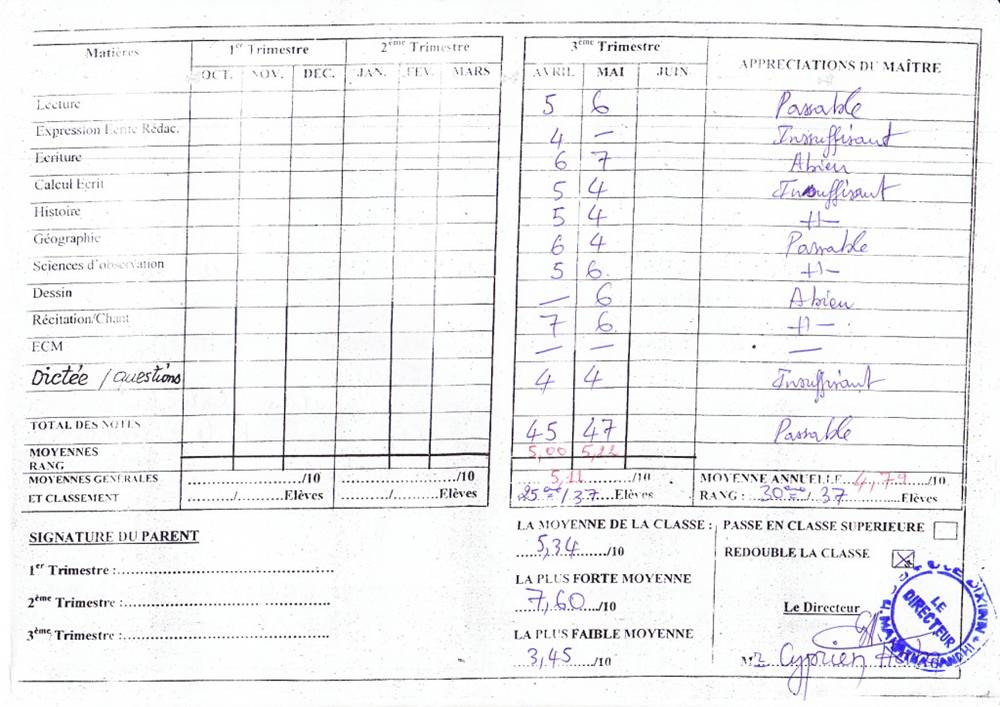 Matières 1er Trimestre 2ème Trimestre 3ème Trimestre APPRECIATIONS DU MAÎTRE
OCT. NOV. DEC. JAN. FEV. MARS AVRIL MAI JUIN
Lecture 5 6 Passable
Expression Ecrite Rédac. 4 — Insuffisant
Ecriture 6 7 Abien
Calcul Ecrit 5 4 Insuffisant
Histoire 5 4 -//-
Géographie 6 4 Passable
Sciences d'observation 5 6 -//-
Dessin — 6 Abien
Récitation/Chant 7 6 -//-
ECM — — —
Dictée / questions 4 4 Insuffisant
TOTAL DES NOTES 45 47 Passable
MOYENNES 5,00 5,22
RANG
MOYENNES GENERALES ....................../10 ....................../10 5,11/10 MOYENNE ANNUELLE...4,79.../10
ET CLASSEMENT ........../..........Elèves ........../..........Elèves 25ème/37...Elèves RANG : 30ème/37 Elèves
SIGNATURE DU PARENT
1er Trimestre :........................................
2ème Trimestre :........................................
3ème Trimestre :........................................
LA MOYENNE DE LA CLASSE :
5,34/10
LA PLUS FORTE MOYENNE
7,60/10
LA PLUS FAIBLE MOYENNE
3,45/10
PASSE EN CLASSE SUPERIEURE
REDOUBLE LA CLASSE
Le Directeur
Cyprien
LE DIRECTEUR
DIXINN
MAHATMA GANDHI